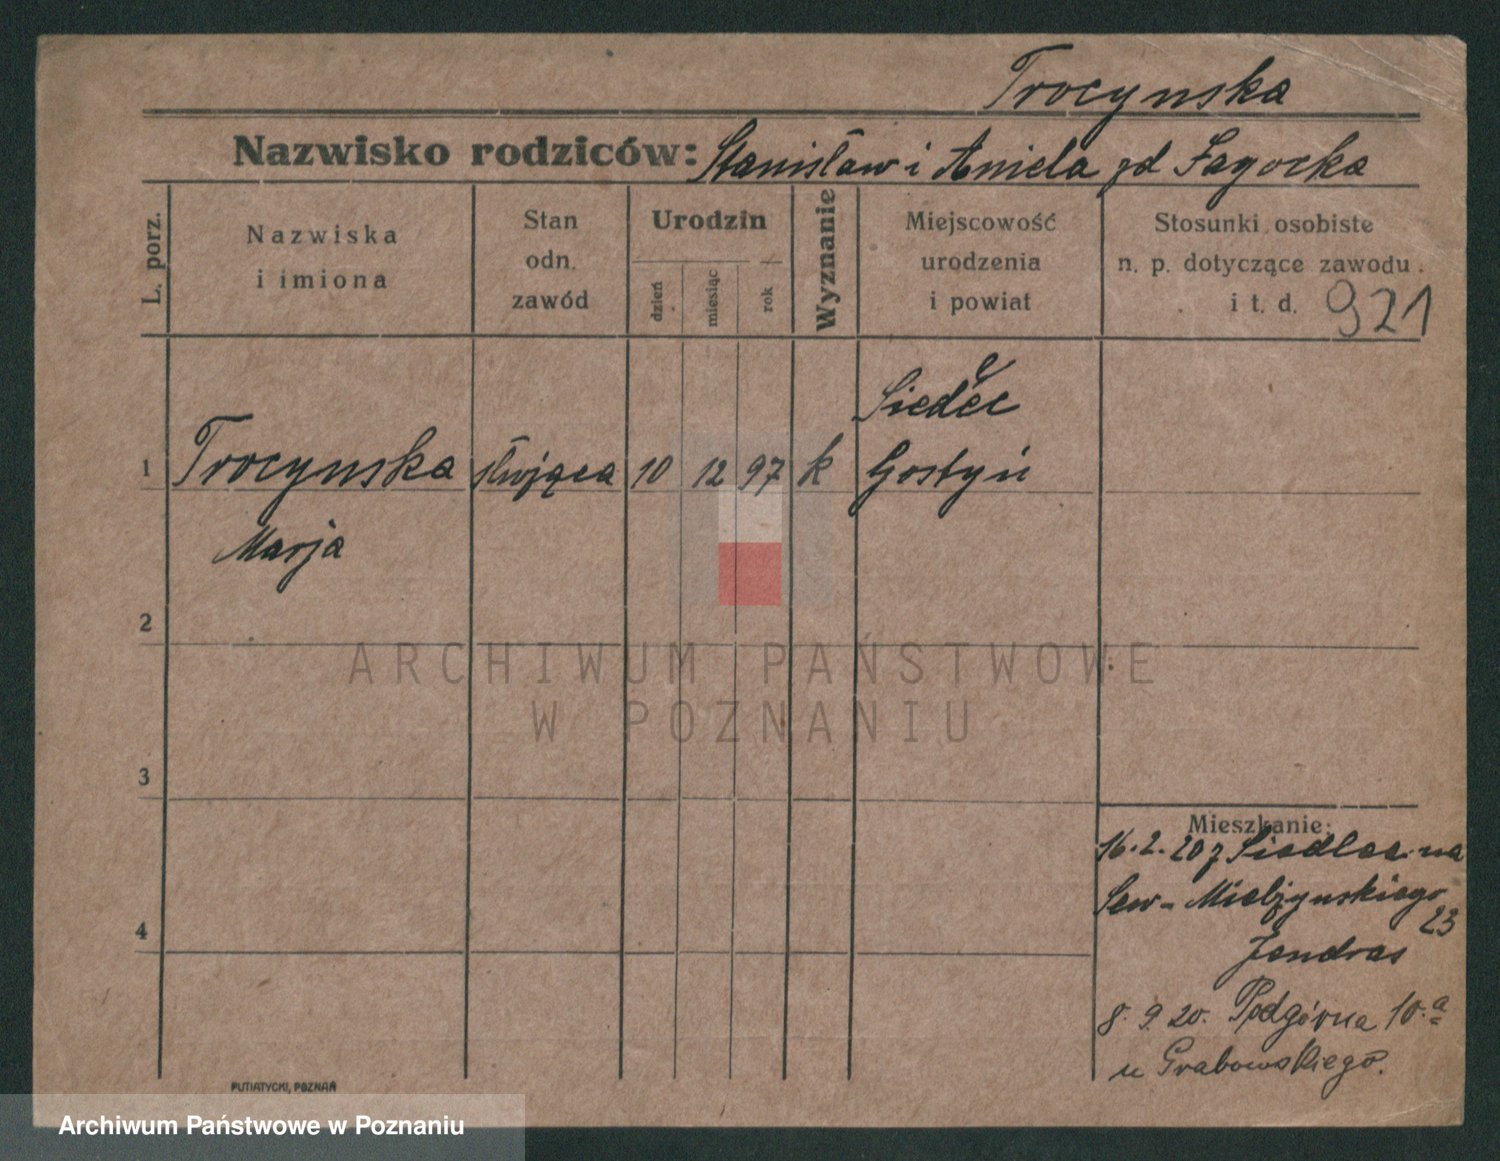 Trocynska
Nazwisko rodziców: Stanisław i Aniela zd Łagocka
L. porz.
Nazwiska
i imiona
Stan
odn.
zawód
Urodzin
dzień
miesiąc
rok
Wyznanie
Miejscowość
urodzenia
i powiat
Stosunki osobiste
n. p. dotyczące zawodu
i t. d. 921
Siedlec
1 Trocynska służąca 10 12 97 k Gostyń
Marja
2
3
4
ARCHIWUM PAŃSTWOWE
W POZNANIU
Mieszkanie:
16.2.20 z Siedlec na
Sew-Mielżynskiego
23
Jendras
8. 9 20. Podgórna 10.a
u Grabowskiego.
PUTIATYCKI, POZNAŃ
Archiwum Państwowe w Poznaniu